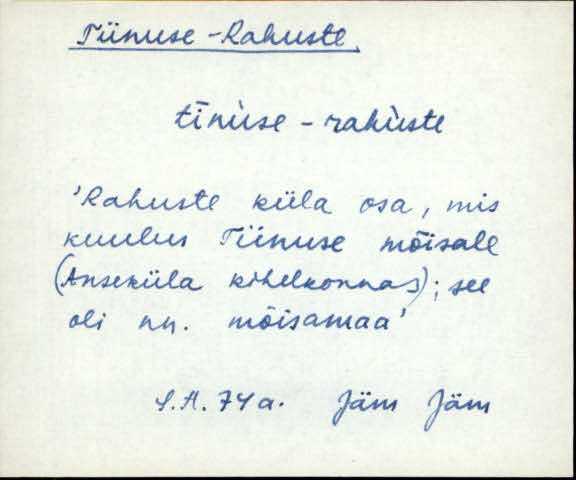 Tiinuse-Rahuste
tīnùse - rahùste
'Rahuste küla osa, mis
kuulus Tiinuse mõisale
(Anseküla kihelkonnas); see
oli nn. mõisamaa'
S.A. 74a. Jäm Jäm